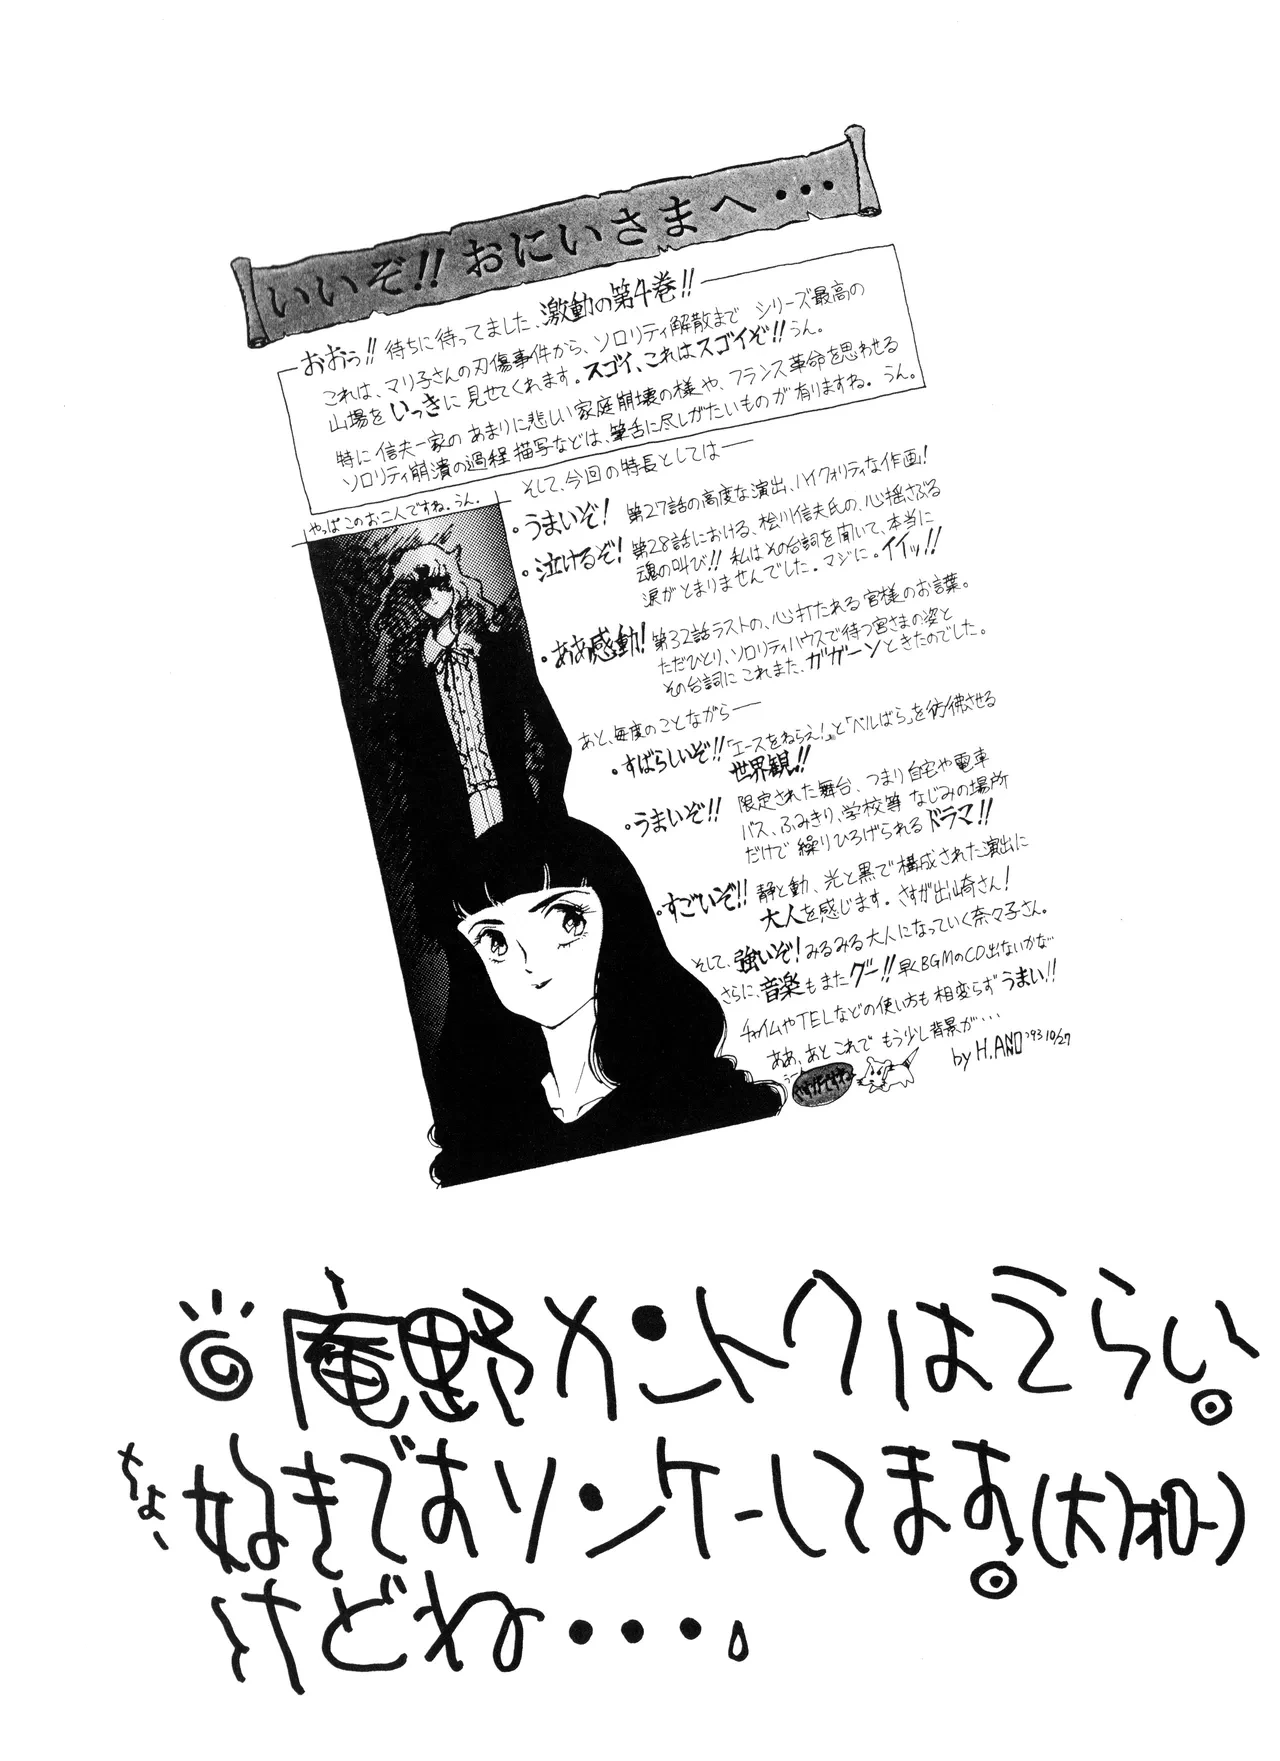 いいぞ!! おにいさまへ・・・
おおっ!! 待ちに待ってました、激動の第4巻!!
これは、マリ子さんの刃傷事件から、ソロリティ解散まで シリーズ最高の
山場を いっきに 見せてくれます。スゴイ、これはスゴイぞ!! うん。
特に 信夫一家の あまりに悲しい 家庭崩壊の様や、フランス革命を思わせる
ソロリティ崩潰の過程描写などは、筆舌に尽しがたいものが 有りますね。うん。
やっぱこのお二人ですね。うん。
そして、今回の特長としては──
・うまいぞ! 第27話の高度な演出、ハイクォリティな作画!
・泣けるぞ! 第28話における、桧川信夫氏の、心揺さぶる
魂の叫び!! 私はその台詞を聞いて、本当に
涙がとまりませんでした。マジに。イイッ!!
・ああ感動! 第32話ラストの、心打たれる 宮様のお言葉。
ただひとり、ソロリティハウスで待つ宮さまの姿と
その台詞に これまた、ガガーンときたのでした。
あと、毎度のことながら──
・すばらしいぞ!! 「エースをねらえ!」と「ベルばら」を彷彿させる
世界観!!
・うまいぞ!! 限定された舞台、つまり自宅や電車
バス、ふみきり、学校等 なじみの場所
だけで 繰りひろげられるドラマ!!
・すごいぞ!! 静と動、光と黒で構成された演出に
大人を感じます。さすが出崎さん!
そして、強いぞ! みるみる大人になっていく奈々子さん。
さらに、音楽もまたグー!! 早くBGMのCD出ないかな
チャイムやTELなどの使い方も相変らずうまい!!
ああ、あとこれで もう少し背景が・・・
by H.ANNO '93 10/27
庵野カントクはえらい。
ちょー好きですソンケーしてます。(大)オロー)
けどね・・・。